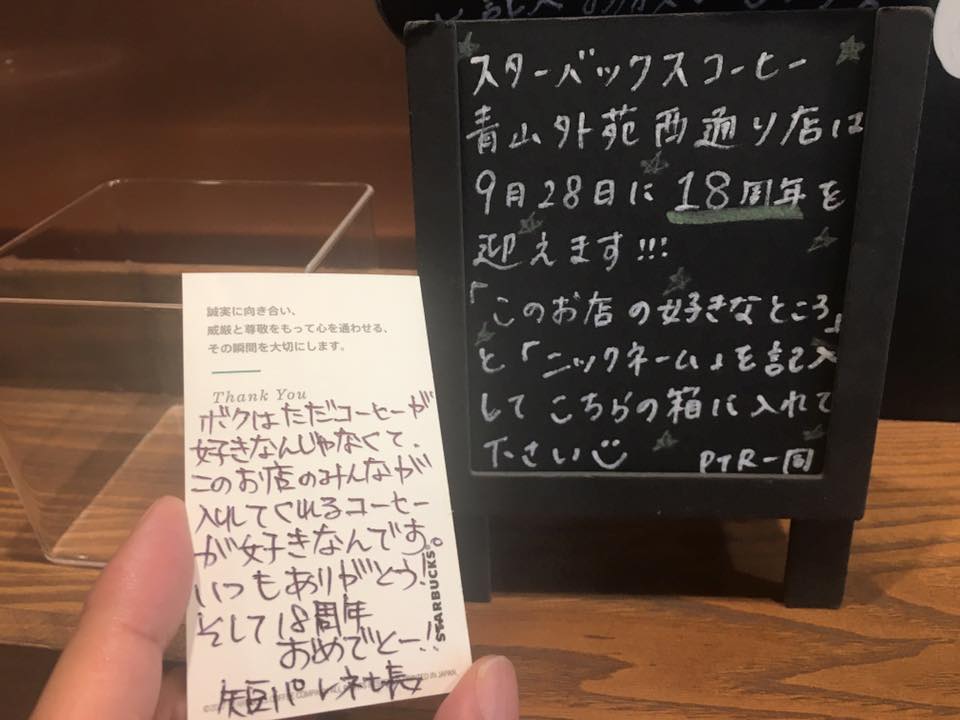 スターバックスコーヒー
青山外苑西通り店は
9月28日に18周年を
迎えます!!!
「このお店の好きなところ」
と「ニックネーム」を記入
してこちらの箱に入れて
下さい
PTR一同
誠実に向き合い、
威厳と尊敬をもって心を通わせる、
その瞬間を大切にします。
Thank You
ボクはただコーヒーが
好きなんじゃなくて、
このお店のみんなが
入れてくれるコーヒー
が好きなんです。
いつもありがとう!
そして18周年
おめでとー!!
STARBUCKS®